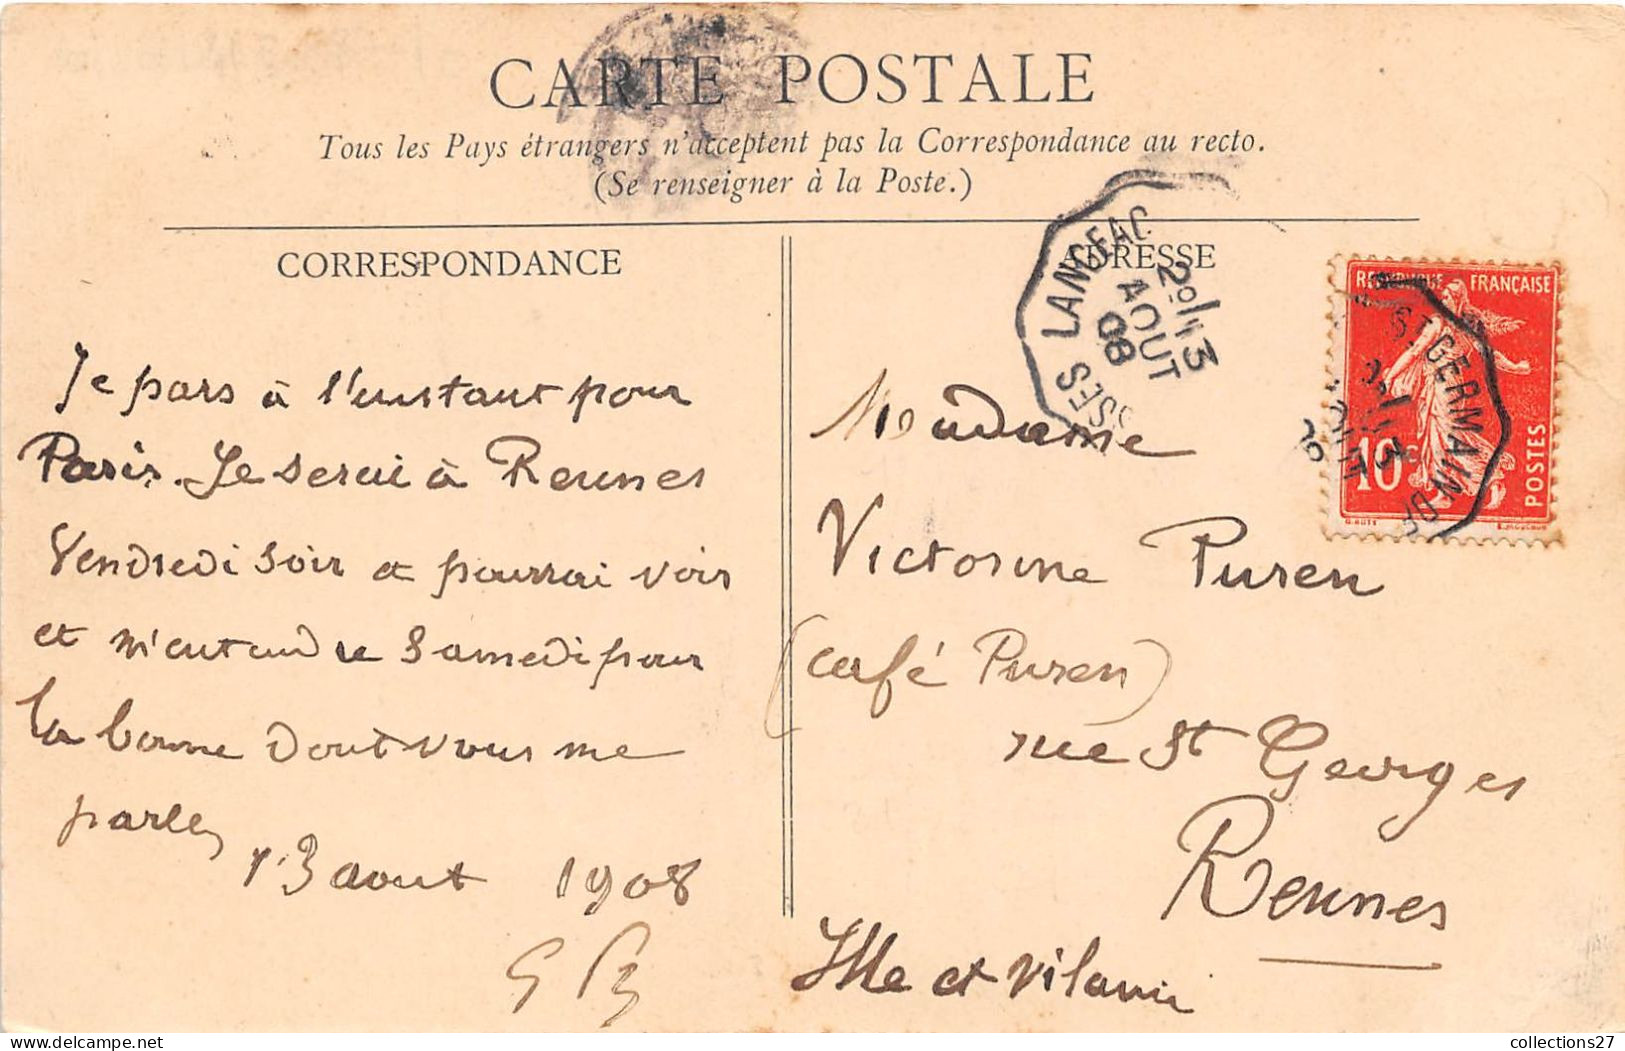 CARTE POSTALE
Tous les Pays étrangers n'acceptent pas la Correspondance au recto.
(Se renseigner à la Poste.)
CORRESPONDANCE
Je pars à l'instant pour
Paris. Je serai à Rennes
Vendredi soir et pourrai voir
et m'entendre Samedi pour
la bonne dont vous me
parlez
13 aout 1908
ADRESSE
LANGEAC
2º 13
AOUT
08
REPUBLIQUE FRANÇAISE
10c
POSTES
ST GERMAIN DE
Madame
Victorine Puren
(café Puren)
rue St Georges
Rennes
Ille et Vilaine
collections27